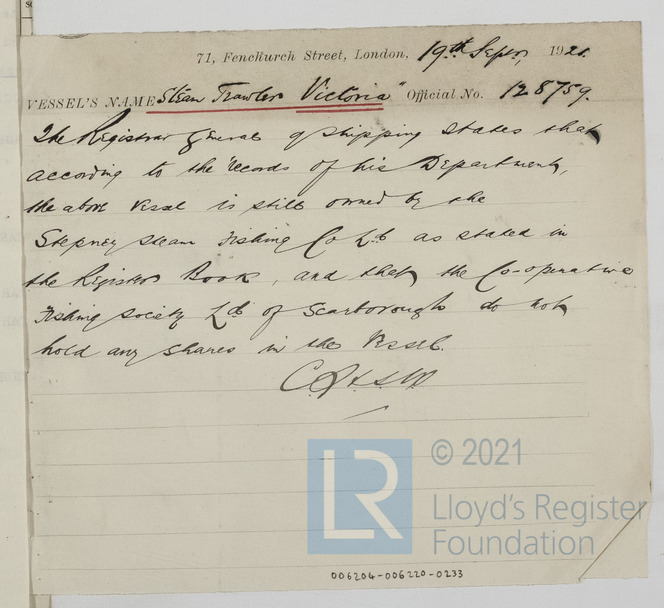 71, Fenchurch Street, London, 19th Septr, 1921.
VESSEL'S NAME Steam Trawler Victoria" Official No. 128759.
The Registrar General of Shipping states that
according to the records of his Department,
the above vessel is still owned by the
Stepney Steam Fishing Co Ld as stated in
the Register Book, and that the Co-operative
Fishing Society Ld of Scarborough do not
hold any shares in the vessel.
© 2021
LR
Lloyd's Register
Foundation
006204-006220-0233